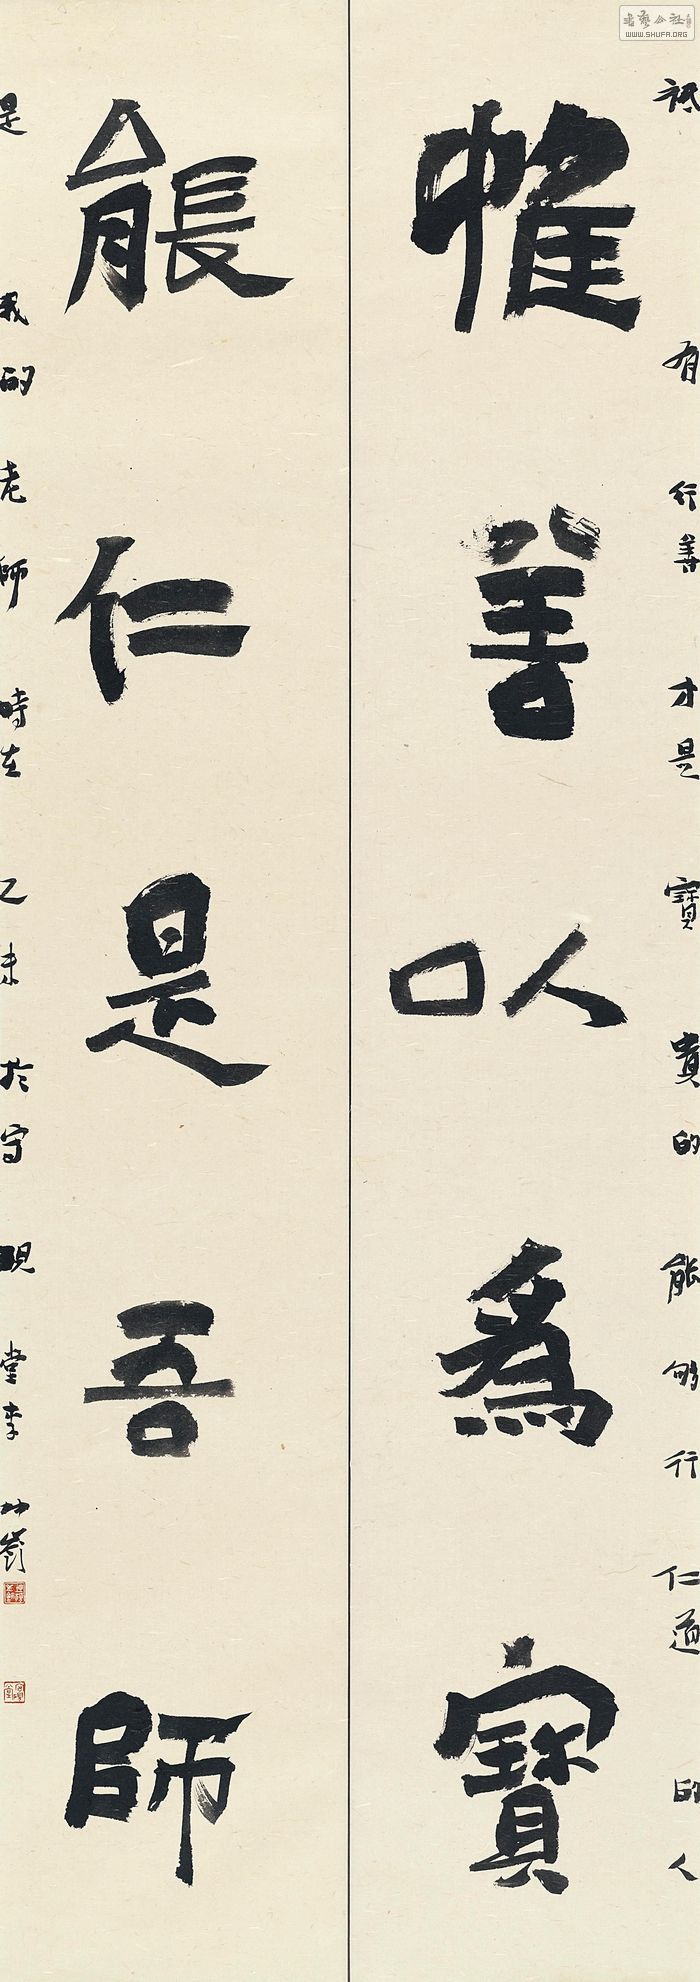 書藝公社
WWW.SHUFA.ORG
祇有行善才是寶貴的能够行仁道的人
惟善以為寶
能仁是吾師
是我的老師時在乙未於守硯堂李